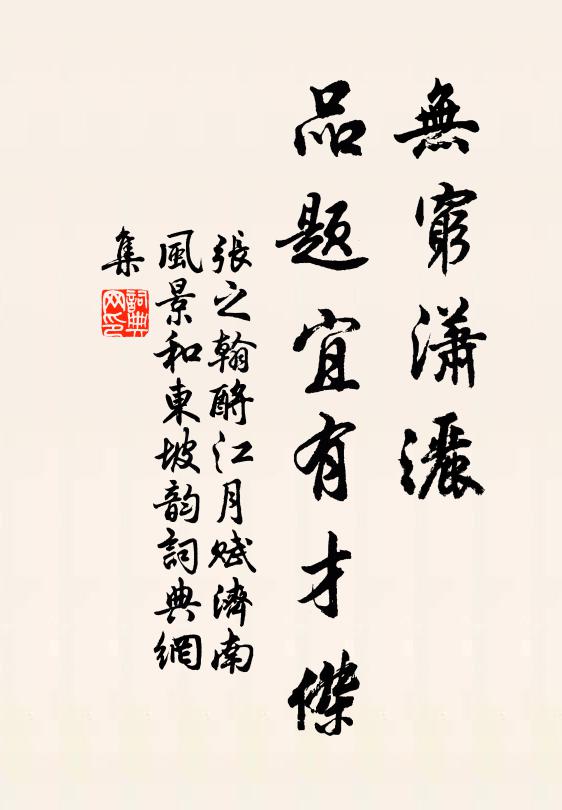 無窮瀟灑
品题宜有才傑
張之翰酹江月賦濟南
風景和東坡韵詞典網
集
詞典
网印